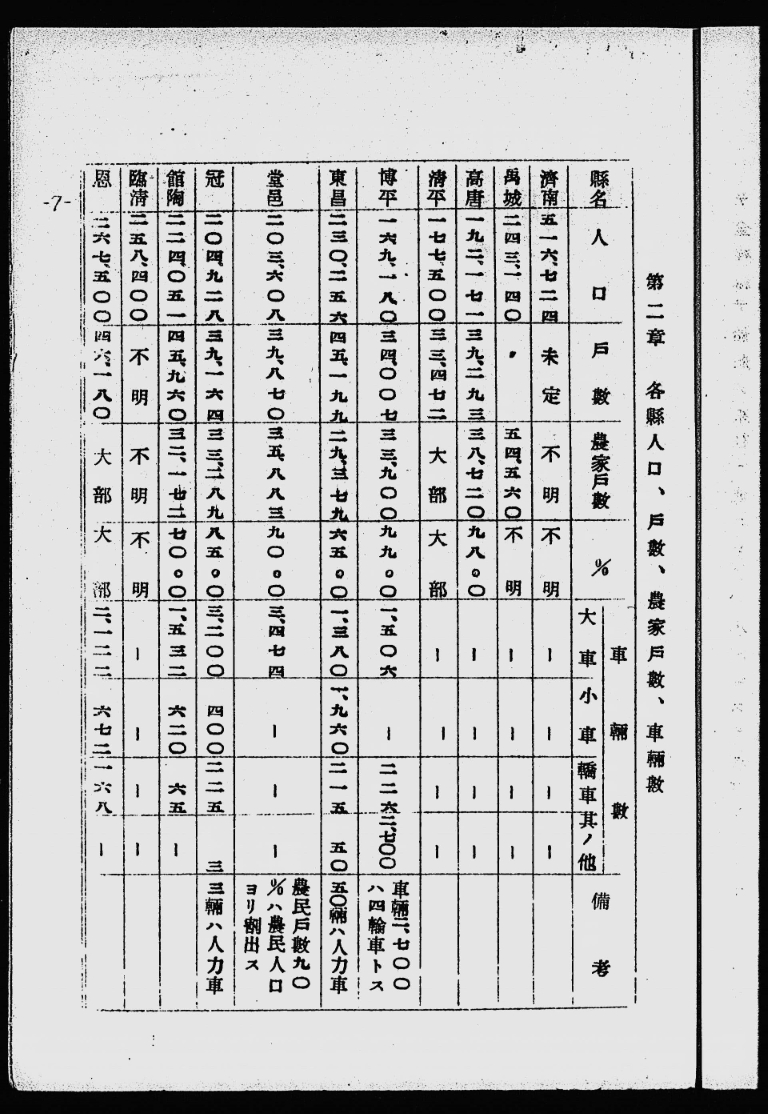 第二章　各縣人口、戶數、農家戶數、車輛數
縣名　人口　戶數　農家戶數　％　車輛數　大車　小車　轎車　其ノ他　備考
濟南　五一六、七二四　未定　不明　不明　｜　｜　｜　｜
禹城　二四三、一四〇　〃　五四、五六〇　不明　｜　｜　｜　｜
高唐　一九二、一七一　三九、二九三　三八、七二〇　九八。〇　｜　｜　｜　｜
清平　一七七、五〇〇　三三、四七二　大部　大部　｜　｜　｜　｜
博平　一六九、一八〇　三四、〇〇七　三三、九〇〇　九九。〇　一、五〇六　｜　二二六　二、七〇〇　車輛二、七〇〇
ハ四輪車トス
東昌　二三〇、二五六　四五、一九九　二九、三七九　六五。〇　一、三八〇　一、九六〇　二一五　五〇　五〇輛ハ人力車
堂邑　二〇三、六〇八　三九、八七〇　三五、八八三　九〇。〇　三、四七四　｜　｜　｜　農民戶數九〇
％ハ農民人口
ヨリ割出ス
冠　二〇四、九二八　三九、一六四　三三、二八九　八五。〇　三、二〇〇　四〇〇　二二五　三　三輛ハ人力車
館陶　二二四、〇五一　四五、九六〇　三二、一七二　七〇。〇　一、五三二　六二〇　六五　｜
臨清　二五八、四〇〇　不明　不明　不明　｜　｜　｜　｜
恩　二六七、五〇〇　四六、一八〇　大部　大部　二、一二二　六七二　一六八　｜
-7-